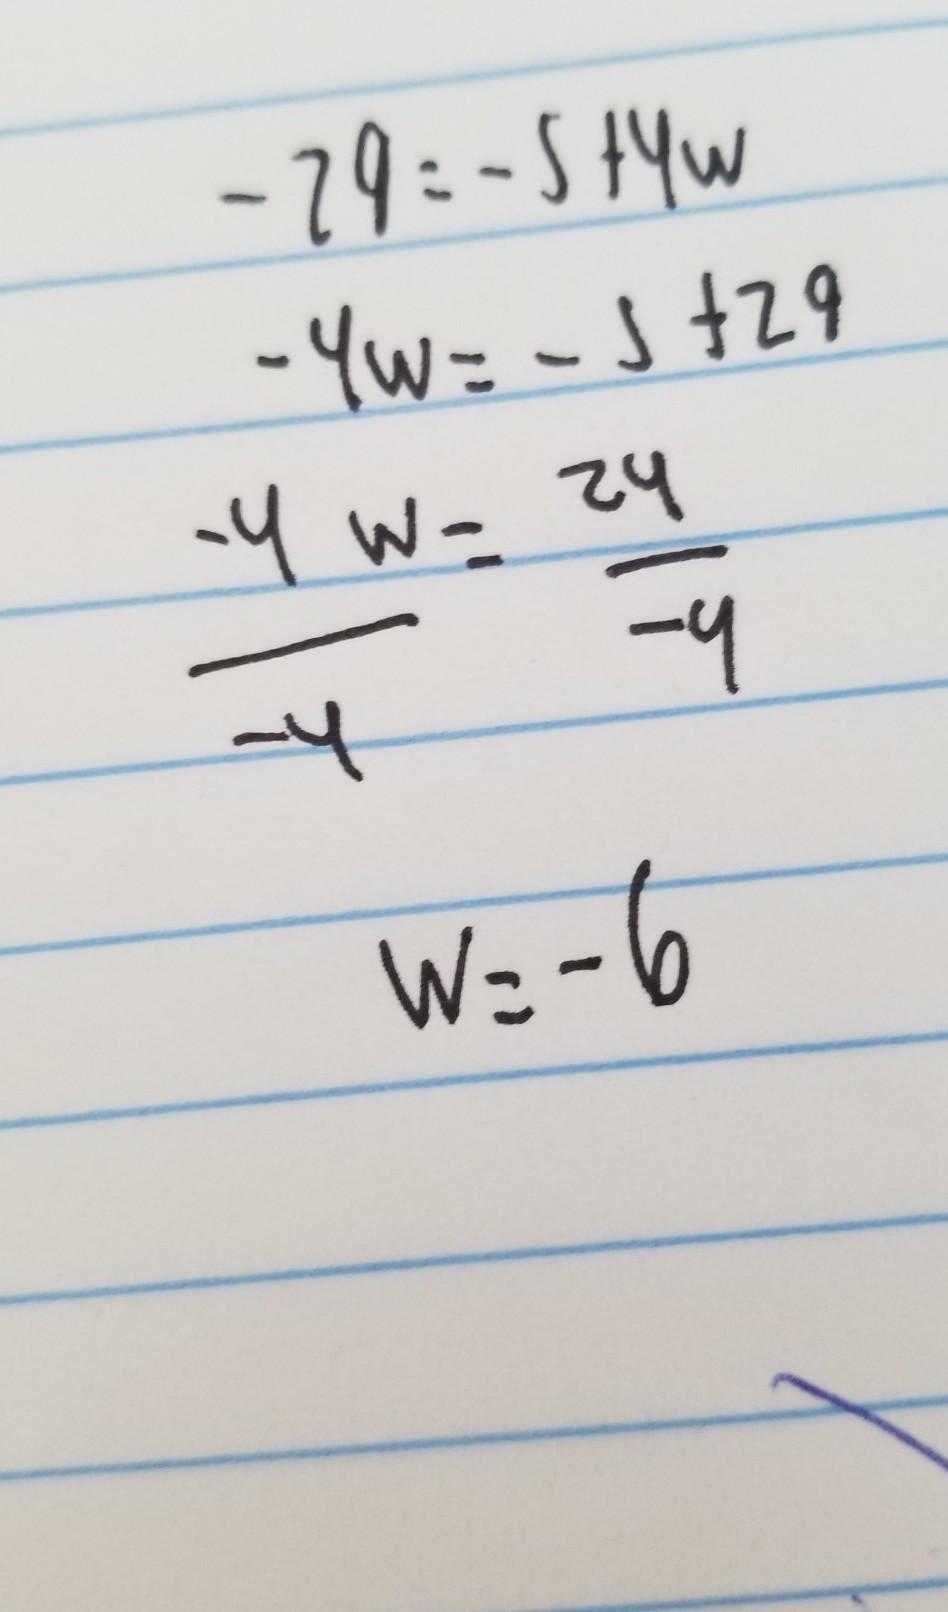 -29=-5+4w
-4w=-5+29
-4 w= 24
-4 -4
w=-6